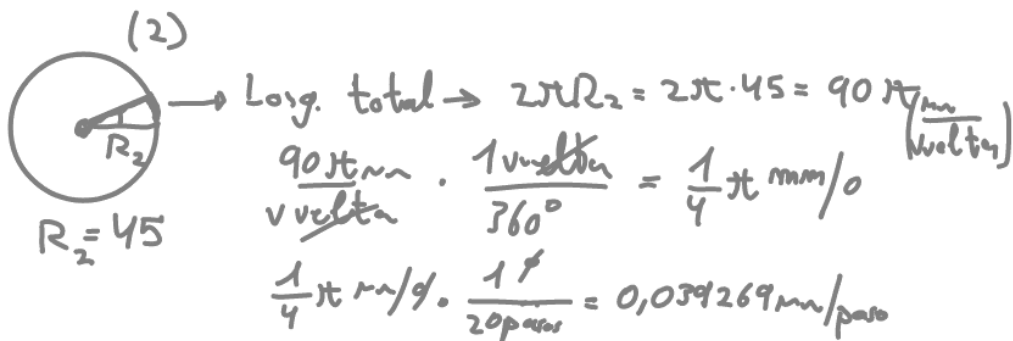 (2)
→ Long. total → 2πR₂ = 2π·45 = 90π (mm/vuelta)
R₂
90π mm / vuelta · 1 vuelta / 360° = 1/4 π mm/°
R₂ = 45
1/4 π mm/° · 1° / 20 pasos = 0,039269 mm/paso